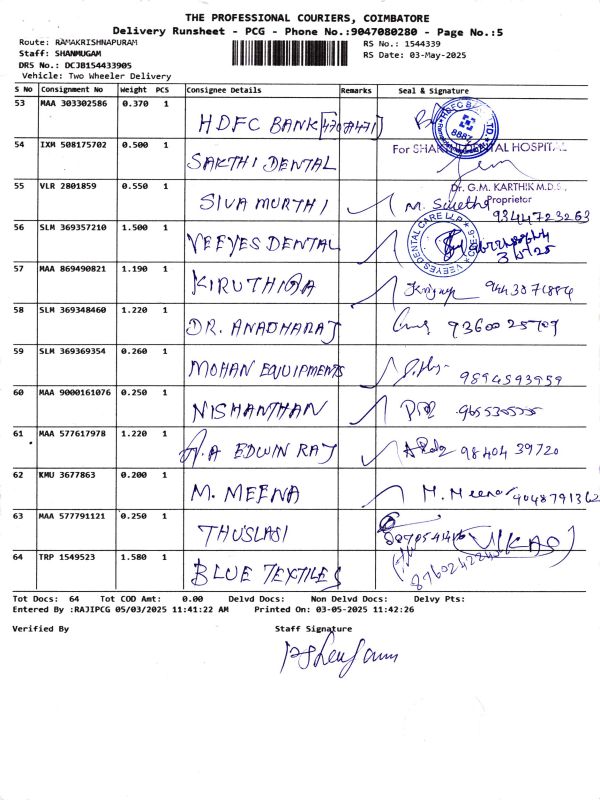 THE PROFESSIONAL COURIERS, COIMBATORE
Delivery Runsheet - PCG - Phone No.:9047080280 - Page No.:5
Route: RAMAKRISHNAPURAM
RS No.: 1544339
Staff: SHANMUGAM
RS Date: 03-May-2025
DRS No.: DCJB154433905
Vehicle: Two Wheeler Delivery
S No Consignment No Weight PCS Consignee Details Remarks Seal & Signature
53 MAA 303302586 0.370 1 HDFC BANK
54 IXM 508175702 0.500 1 SAKTHI DENTAL
For SHAKTHI DENTAL HOSPITAL
Dr. G.M. KARTHIK M.D.S.,
Proprietor
55 VLR 2801859 0.550 1 SIVA MURTHI M. Swetha 9344723263
56 SLM 369357210 1.500 1 VEEYES DENTAL
VEEYES DENTAL CARE LLP
57 MAA 869490821 1.190 1 KIRUTHIGA
58 SLM 369348460 1.220 1 DR. ANADHARAJ
59 SLM 369369354 0.260 1 MOHAN EQUIPMENTS 9894593959
60 MAA 9000161076 0.250 1 NISHANTHAN
61 MAA 577617978 1.220 1 A.A EDWIN RAJ 98404 39720
62 KMU 3677863 0.200 1 M. MEENA M. Meena 9048791362
63 MAA 577791121 0.250 1 THUSLASI
64 TRP 1549523 1.580 1 BLUE TEXTILES
Tot Docs: 64 Tot COD Amt: 0.00 Delvd Docs: Non Delvd Docs: Delvy Pts:
Entered By :RAJIPCG 05/03/2025 11:41:22 AM Printed On: 03-05-2025 11:42:26
Verified By Staff Signature